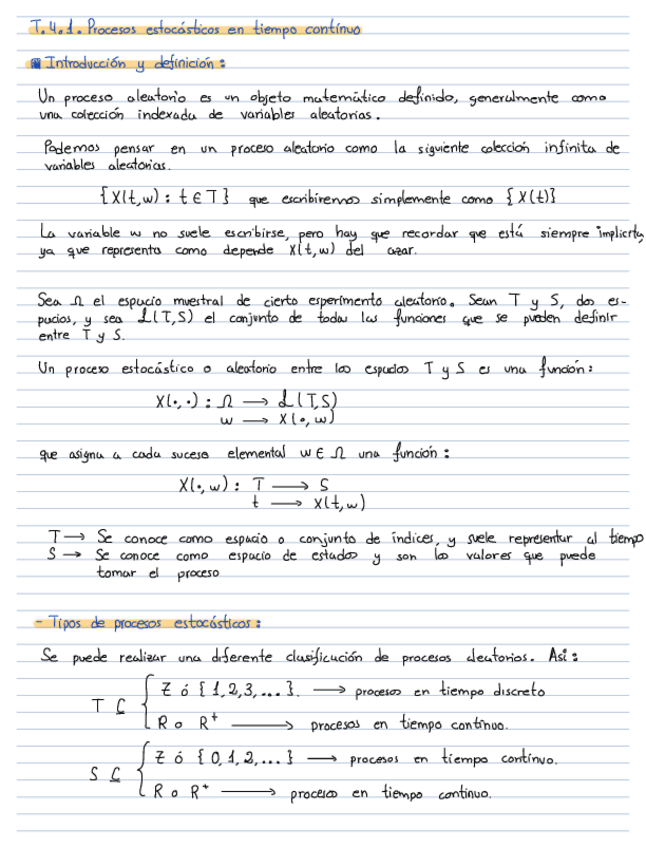 T.4.1. Procesos estocásticos en tiempo contínuo
Introducción y definición:
Un proceso aleatorio es un objeto matemático definido, generalmente como
una colección indexada de variables aleatorias.
Podemos pensar en un proceso aleatorio como la siguiente colección infinita de
variables aleatorias.
{X(t,w) : t ∈ T} que escribiremos simplemente como {X(t)}
La variable w no suele escribirse, pero hay que recordar que está siempre implícita,
ya que representa como depende X(t,w) del azar.
Sea Ω el espacio muestral de cierto experimento aleatorio. Sean T y S, dos es-
pacios, y sea L(T,S) el conjunto de todas las funciones que se pueden definir
entre T y S.
Un proceso estocástico o aleatorio entre los espacios T y S es una función:
X(·,·) : Ω → L(T,S)
w → X(·,w)
que asigna a cada suceso elemental w ∈ Ω una función:
X(·,w) : T → S
t → X(t,w)
T → Se conoce como espacio o conjunto de índices, y suele representar al tiempo
S → Se conoce como espacio de estados y son los valores que puede
tomar el proceso
- Tipos de procesos estocásticos:
Se puede realizar una diferente clasificación de procesos aleatorios. Así:
T ⊆ { Z ó {1,2,3,...}. → procesos en tiempo discreto
R o R⁺ → procesos en tiempo contínuo.
S ⊆ { Z ó {0,1,2,...} → procesos en tiempo contínuo.
R o R⁺ → procesos en tiempo continuo.